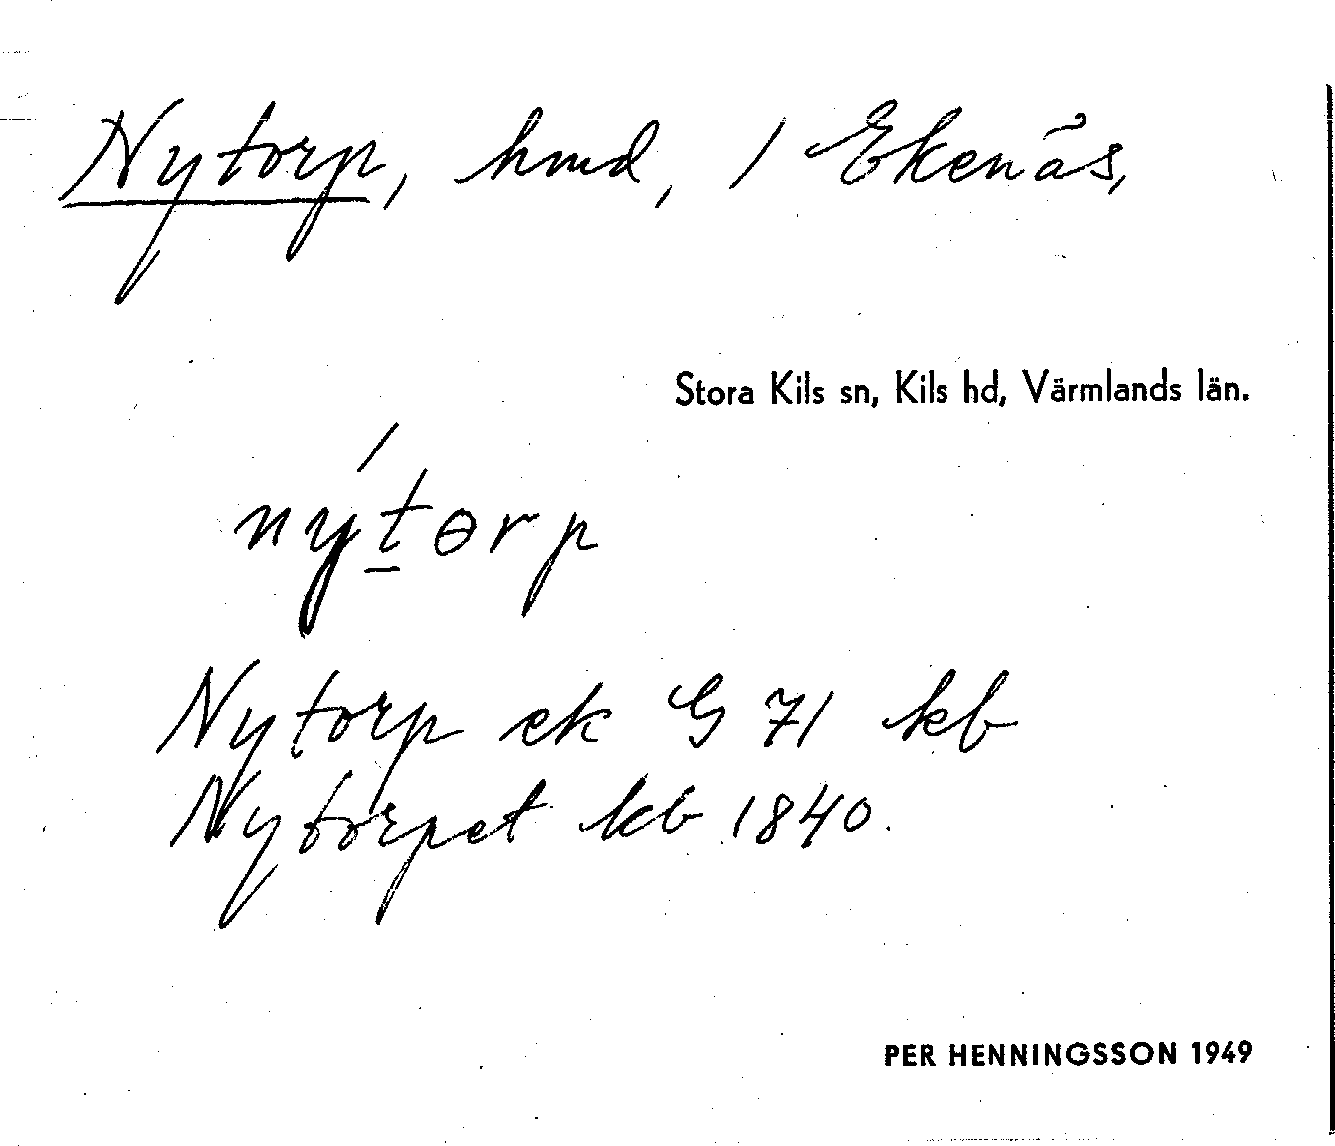 Nytorp, hmd, 1 Ekenäs,
Stora Kils sn, Kils hd, Värmlands län.
nýtɵrp
Nytorp ek G 71 kb
Nytorpet kb 1840.
PER HENNINGSSON 1949